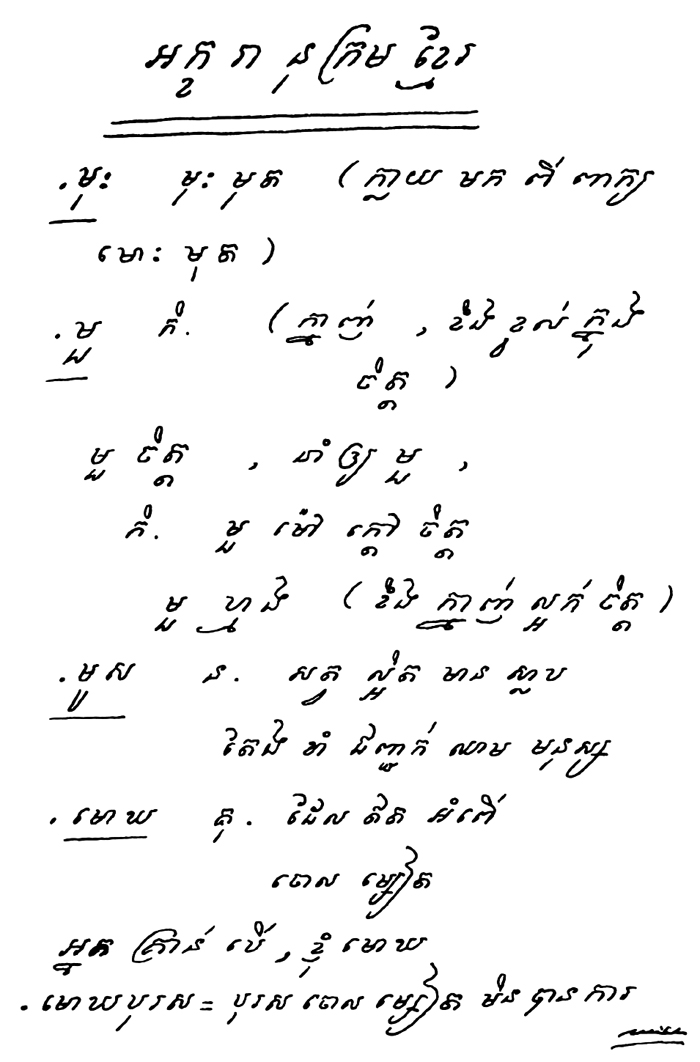 អក្ខរានុក្រមខ្មែរ
.មុះ មុះមុត (ក្លាយមកពីពាក្យ
មោះមុត)
.មួ កិ. (ក្នាញ់, ខឹងខ្វល់ក្នុង
ចិត្ត)
មួចិត្ត, នាំឲ្យមួ,
កិ. មួម៉ៅក្តៅចិត្ត
មួហ្មង (ខឹងក្នាញ់ល្អក់ចិត្ត)
.មូស ន. សត្វល្អិតមានស្លាប
តែងខាំជញ្ជក់ឈាមមនុស្ស
.មោឃ គុ. ដែលឥតអំពើ
ចោលម្សៀត
អ្នកគ្រាន់បើ, ខ្ញុំមោឃ
.មោឃបុរស = បុរសចោលម្សៀតមិនបានការ